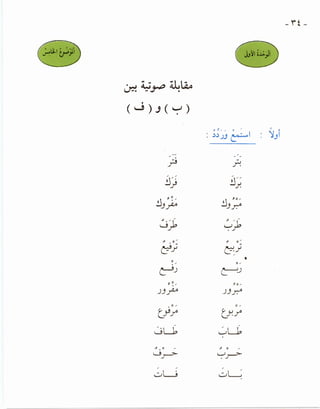 - ٣٤ -
الوحدة الأولى
الموضوع الخامس
مقابلة صوتية بين
( ب ) و ( ف )
أولاً : اسْتَمِعْ وَرَدِّدْ :
بَتَر فَتَر
بَرَك فَرَك
مَبْروك مَفْروك
طَرَب طَرَف
تَرْبيع تَرْفيع
رَبَـع رَفَـع
مَبْرور مَفْرور
مَرْبوع مَرْفوع
طـاب طـاف
حَـرْب حَـرْف
بـات فـات